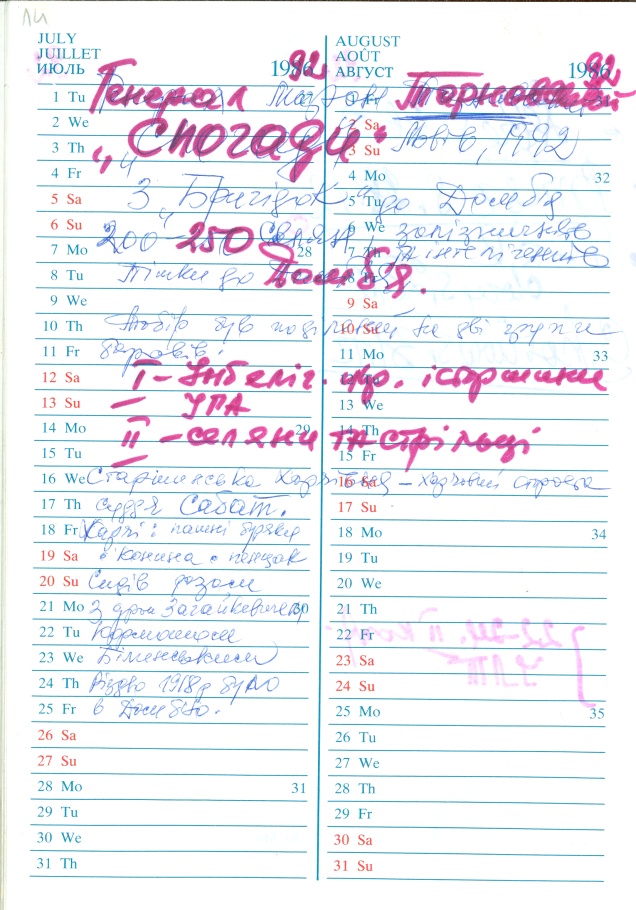 ЛИ
JULY
JUILLET
ИЮЛЬ 1986 92
AUGUST
AOÛT
АВГУСТ 1986 92
Генерал Тарнавський
„Спогади"
Львів, 1992
З „Бригідок" до Домбя
200-250 Селян залізничників
та інтелігентів
Пішки до Домбя.
Табір був поділений на дві групи
бараків.
I – Інтеліг. укр. і старшини
– УГА
II – селяни та стрільці
Старшинська Харчівня – харчовий
суддя Сабат.
Харчі: пашні буряки
конина і пенцак
Сидів разом
З дром Загайкевичем
Різдво 1918 р було
в Домбю.
1 Tu
2 We
3 Th
4 Fr
5 Sa
6 Su
7 Mo 28
8 Tu
9 We
10 Th
11 Fr
12 Sa
13 Su
14 Mo 29
15 Tu
16 We
17 Th
18 Fr
19 Sa
20 Su
21 Mo 30
22 Tu
23 We
24 Th
25 Fr
26 Sa
27 Su
28 Mo 31
29 Tu
30 We
31 Th
1 Fr 31
2 Sa
3 Su
4 Mo 32
5 Tu
6 We
7 Th
8 Fr
9 Sa
10 Su
11 Mo 33
12 Tu
13 We
14 Th
15 Fr
16 Sa
17 Su
18 Mo 34
19 Tu
20 We
21 Th
22 Fr
23 Sa
24 Su
25 Mo 35
26 Tu
27 We
28 Th
29 Fr
30 Sa
31 Su